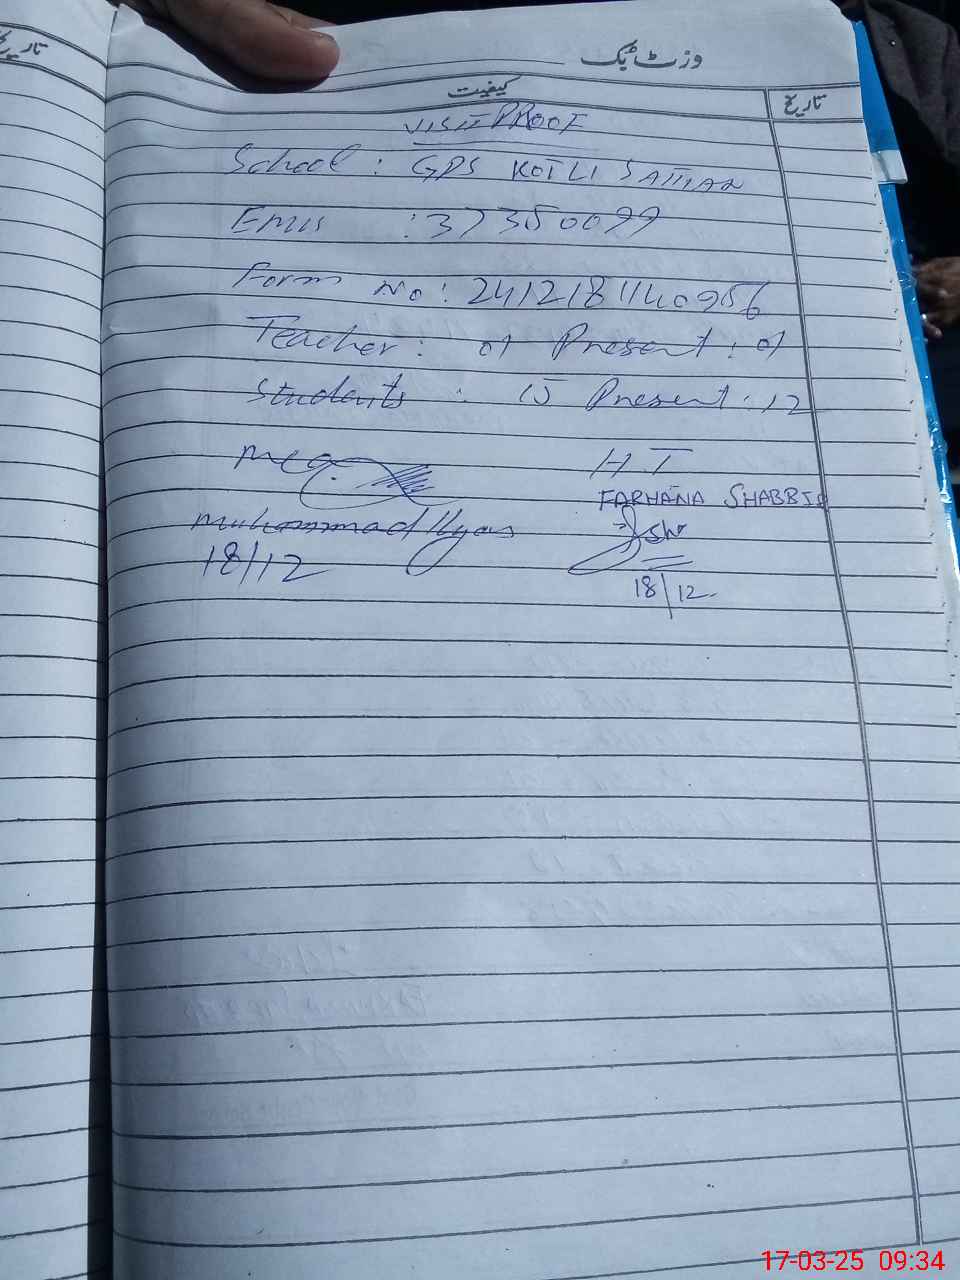 تاریخ
وزٹ بک
کیفیت
تاریخ
VISIT PROOF
School : GPS KOTLI SATTIAN
Emis : 37350099
Form No : 2412181140956
Teacher : 01 Present : 01
Students : 15 Present : 12
MEA
H.T
FARHANA SHABBIR
Muhammad Ilyas
18/12
18/12.
17-03-25 09:34